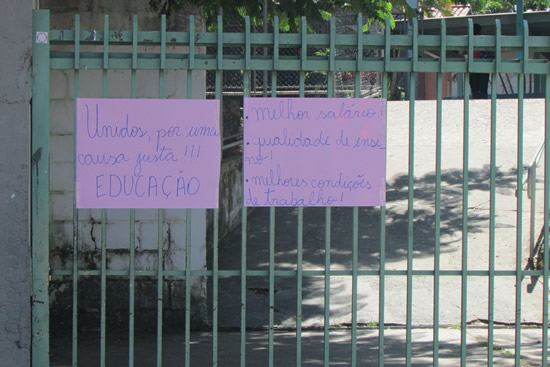 Unidos, por uma
causa justa!!!
EDUCAÇÃO
• melhor salário!
• qualidade de ensi
no!
• melhores condições
de trabalho!